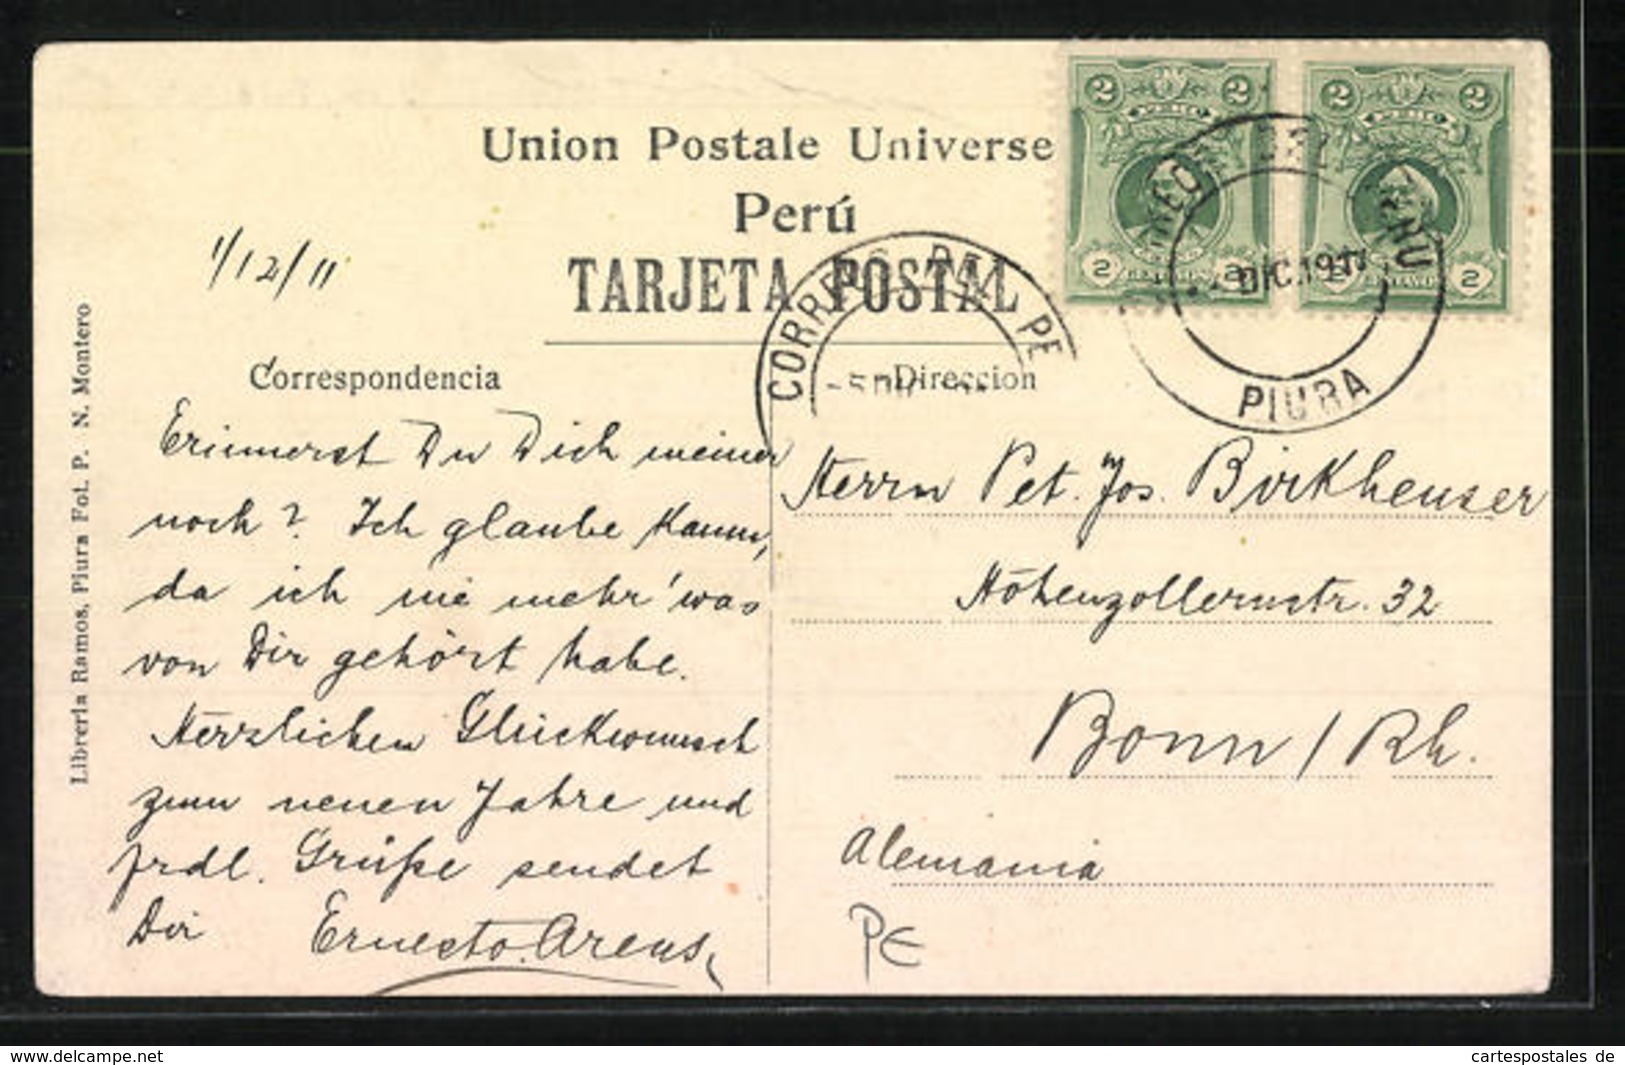 Union Postale Universe
Perú
TARJETA POSTAL
1/12/11
Correspondencia
Direccion
Erinnerst Du Dich meiner
noch? Ich glaube kaum,
da ich nie mehr 'was
von Dir gehört habe.
Herzlichen Glückwunsch
zum neuen Jahre und
frdl. Grüße sendet
Dir Ernesto Arens
Herrn Pet. Jos. Birkheuser
Hohenzollernstr. 32
Bonn / Rh.
Alemania
PE
Libreria Ramos, Piura Fot. P. N. Montero
2 2
PERÚ
2 CENTAVOS 2
2 2
PERÚ
2 CENTAVOS 2
DIC. 191
PIURA
CORREOS DEL PE
www.delcampe.net
cartespostales de